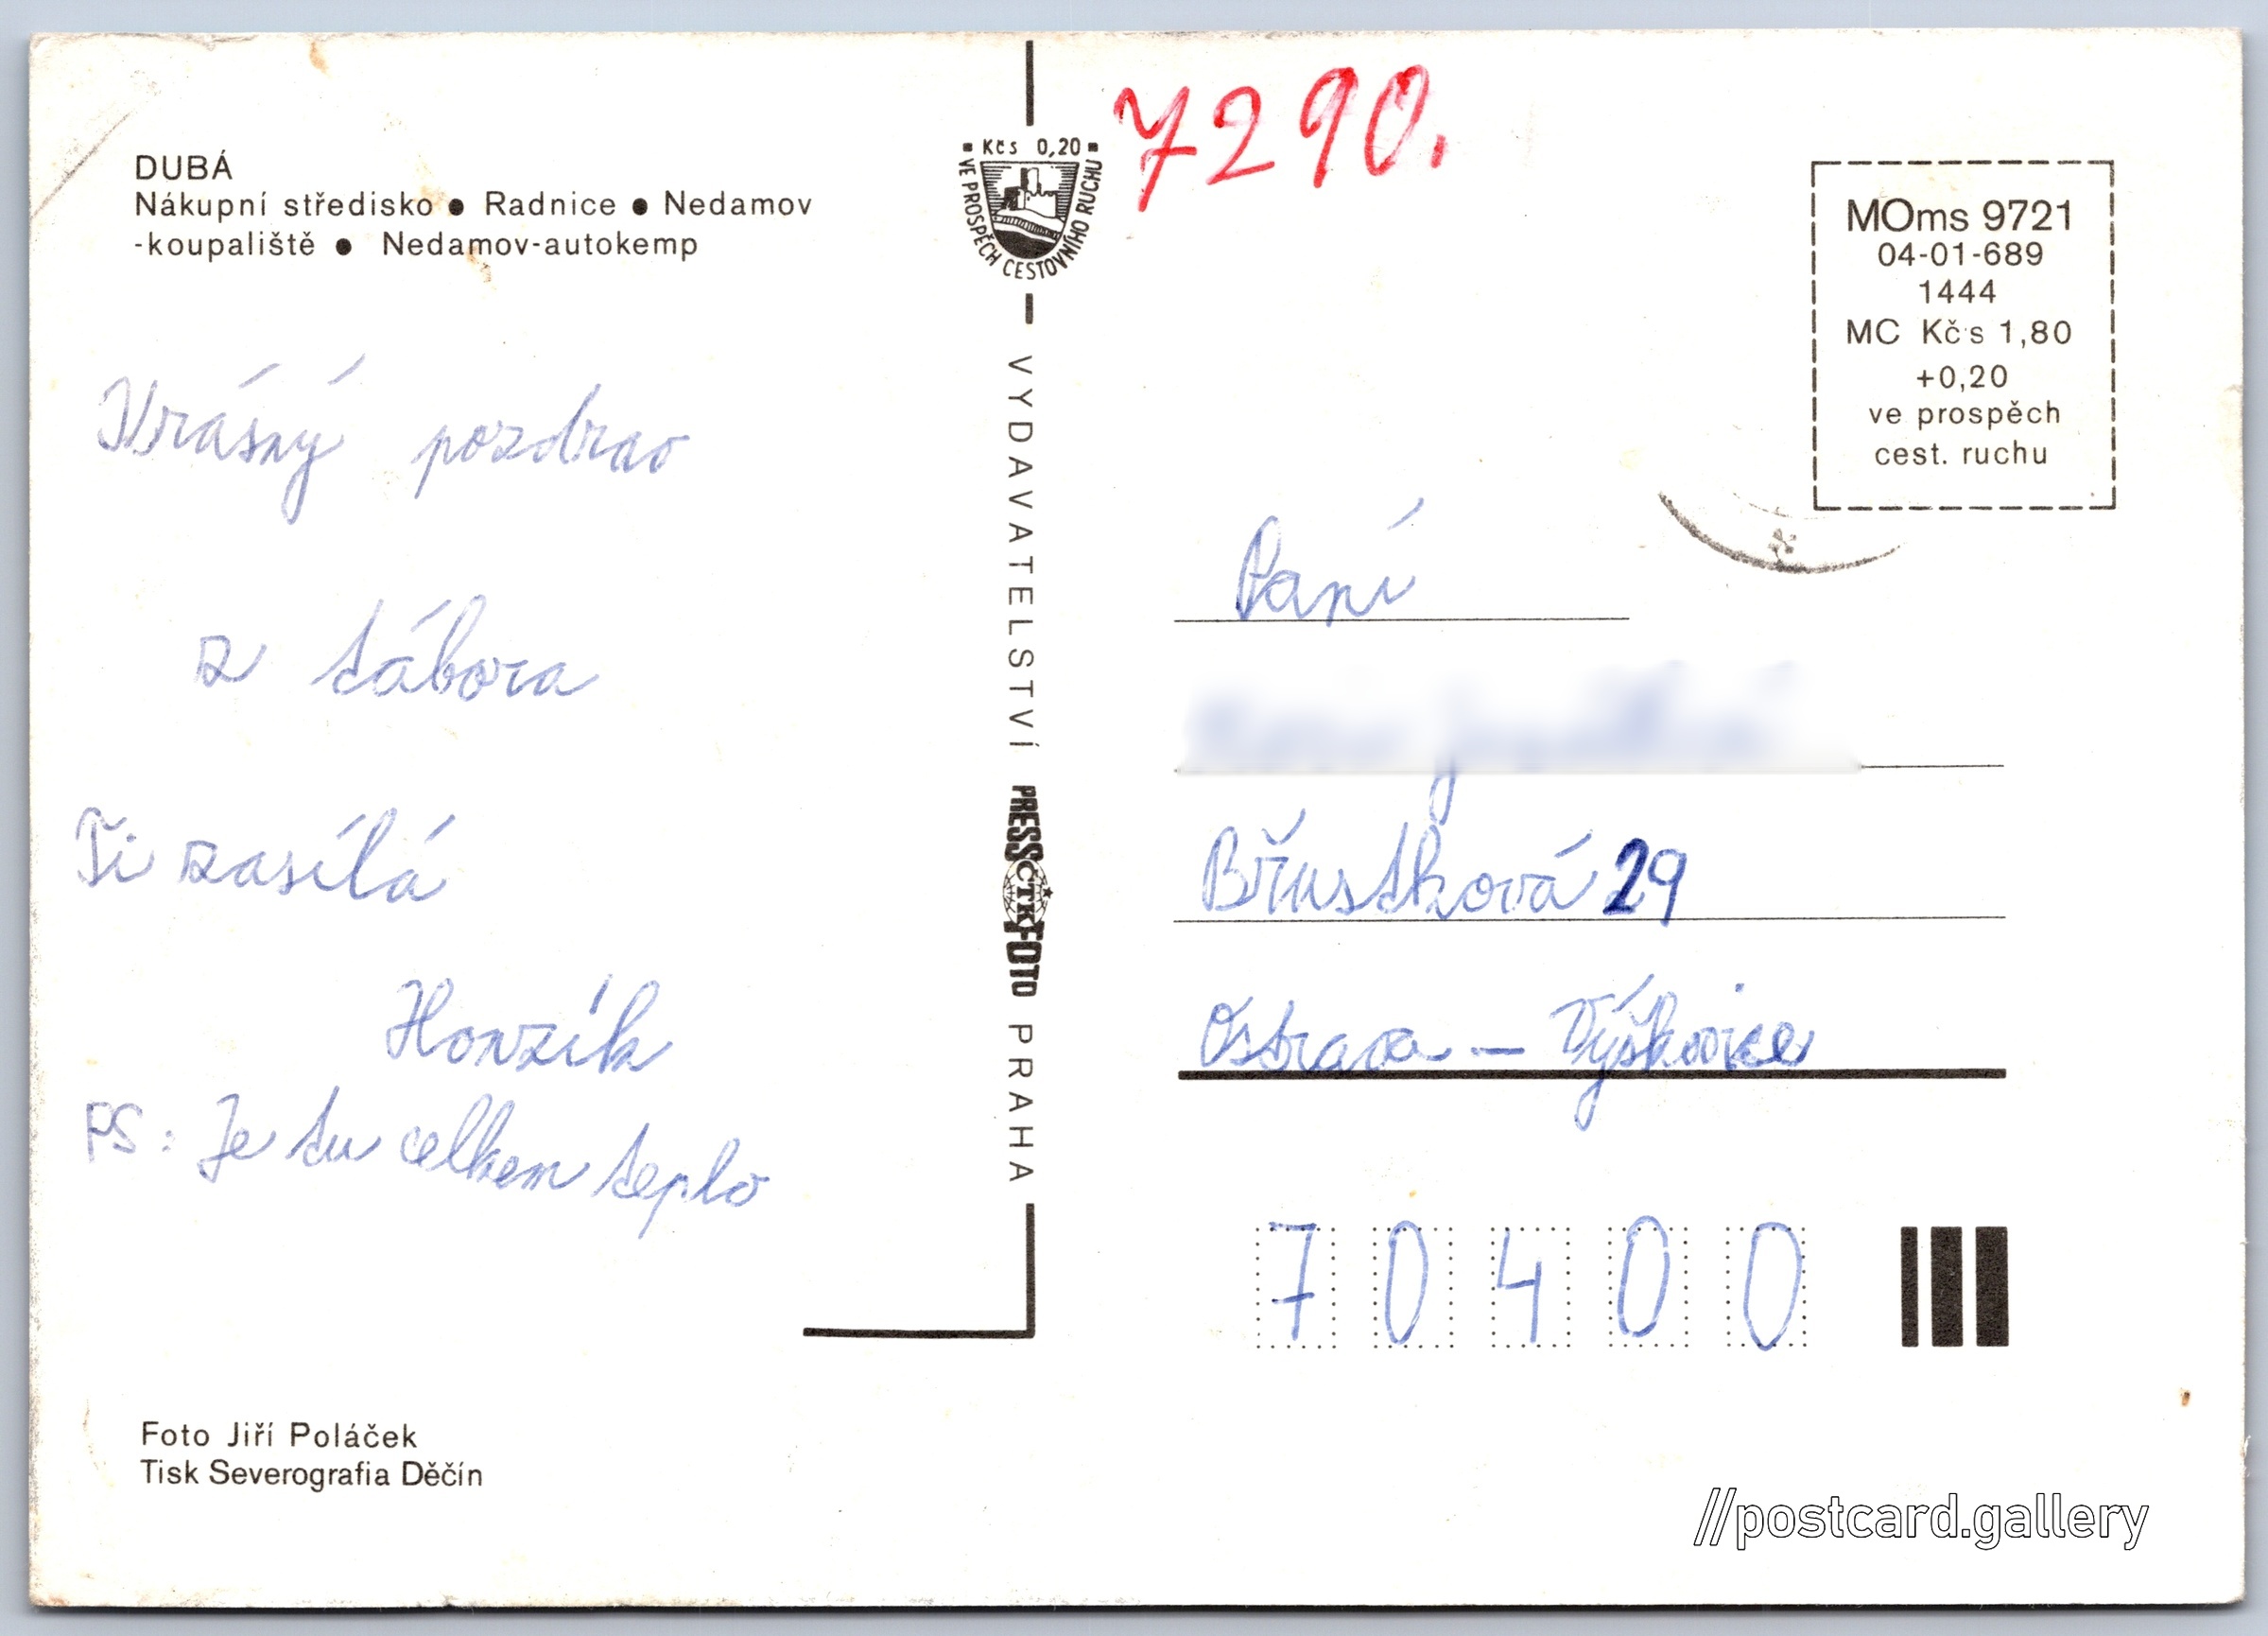 DUBÁ
Nákupní středisko ● Radnice ● Nedamov
-koupaliště ● Nedamov-autokemp
Krásný pozdrav
z tábora
Ti zasílá
Honzík
PS: Je tu celkem teplo
Foto Jiří Poláček
Tisk Severografia Děčín
Kčs 0,20
VE PROSPĚCH CESTOVNÍHO RUCHU
VYDAVATELSTVÍ PRESSČTKFOTO PRAHA
7290.
MOms 9721
04-01-689
1444
MC Kčs 1,80
+0,20
ve prospěch
cest. ruchu
Paní
Břustková 29
Ostrava – Výškovice
70400
//postcard.gallery